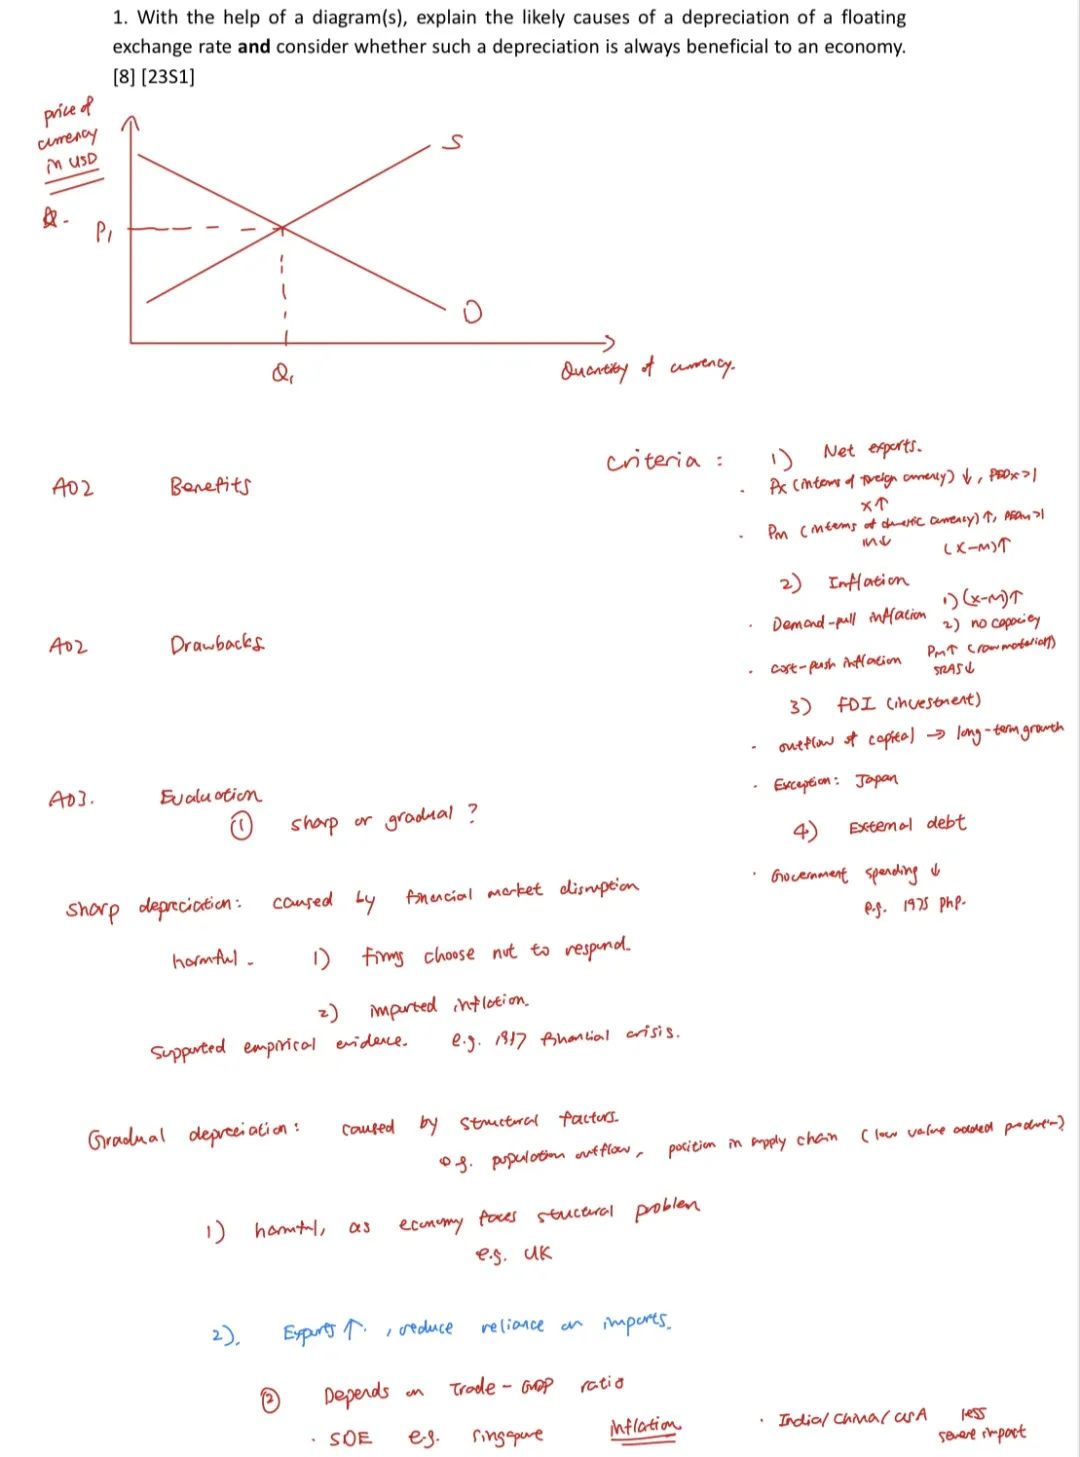 1. With the help of a diagram(s), explain the likely causes of a depreciation of a floating
exchange rate and consider whether such a depreciation is always beneficial to an economy.
[8] [23S1]
price of
currency
in USD
P1
S
D
Q1
Quantity of currency.
criteria :
1) Net exports.
· Px (in terms of foreign currency) ↓, PEDx>1
X↑
· Pm (in terms of domestic currency) ↑, PEDm>1
M↓ (X-M)↑
AO2 Benefits
2) Inflation
· Demand-pull inflation 1) (X-M)↑
2) no capacity
· cost-push inflation Pm↑ (raw materials)
SRAS↓
AO2 Drawbacks
3) FDI (investment)
· outflow of capital → long-term growth
· Exception: Japan
4) External debt
· Government spending ↓
e.g. 1975 PhP.
AO3. Evaluation
① sharp or gradual ?
sharp depreciation: caused by financial market disruption
harmful - 1) firms choose not to respond.
2) imported inflation.
Supported empirical evidence. e.g. financial crisis.
Gradual depreciation: caused by structural factors.
e.g. population outflow, position in supply chain (low value added production)
1) harmful, as economy faces structural problem
e.g. UK
2). Exports ↑. , reduce reliance on imports.
② Depends on Trade - GDP ratio
· SOE e.g. Singapore inflation
· India/ China/ USA less
severe impact